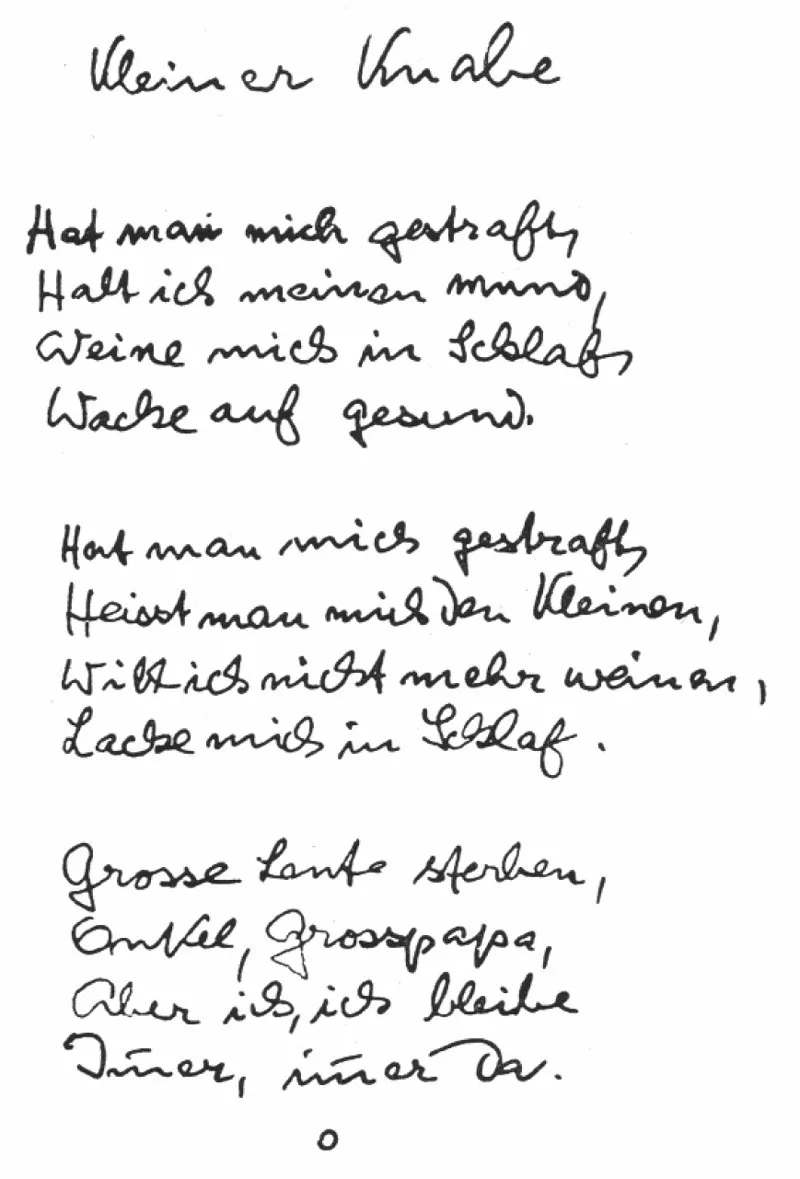 Kleiner Knabe
Hat man mich gestraft,
Halt ich meinen Mund,
Weine mich in Schlaf,
Wache auf gesund.
Hat man mich gestraft,
Heisst man mich den Kleinen,
Will ich nicht mehr weinen,
Lache mich in Schlaf.
Grosse Leute sterben,
Onkel, Grosspapa,
Aber ich, ich bleibe
Im̅er, im̅er da.